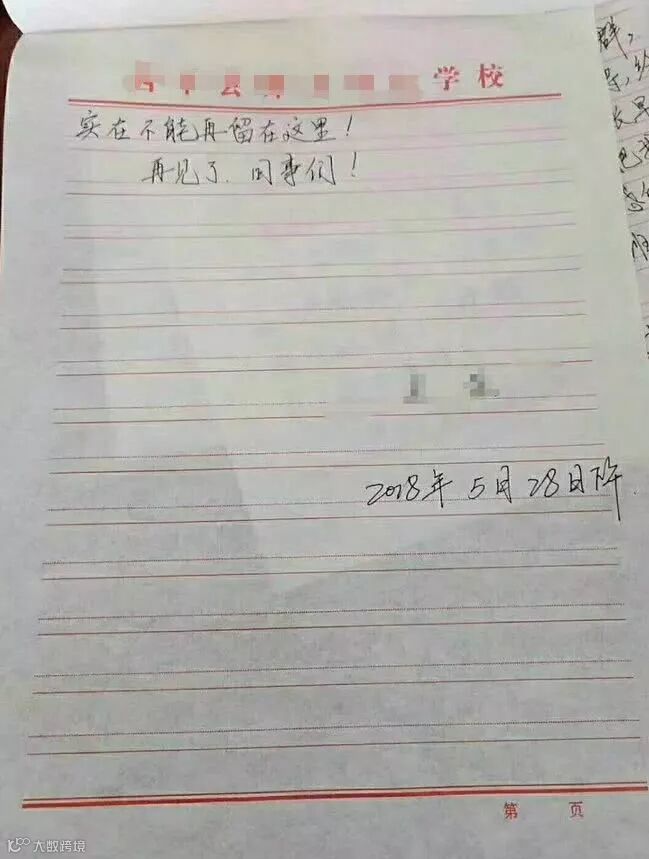 学校
实在不能再留在这里！
再见了．同事们！
2018年5月28日下午.
第 页
大数跨境